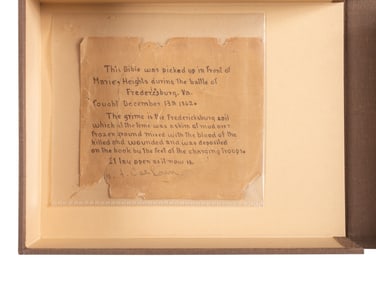 This Bible was picked up in front of
Marie's Heights during the battle of
Fredericksburg. Va.
Fought December 13th 1862.
The grime is the Fredericksburg soil
which at the time was a skim of mud over
frozen ground mixed with the blood of the
killed and wounded and was deposited
on the book by the feet of the charging troops.
It lay open as it now is.